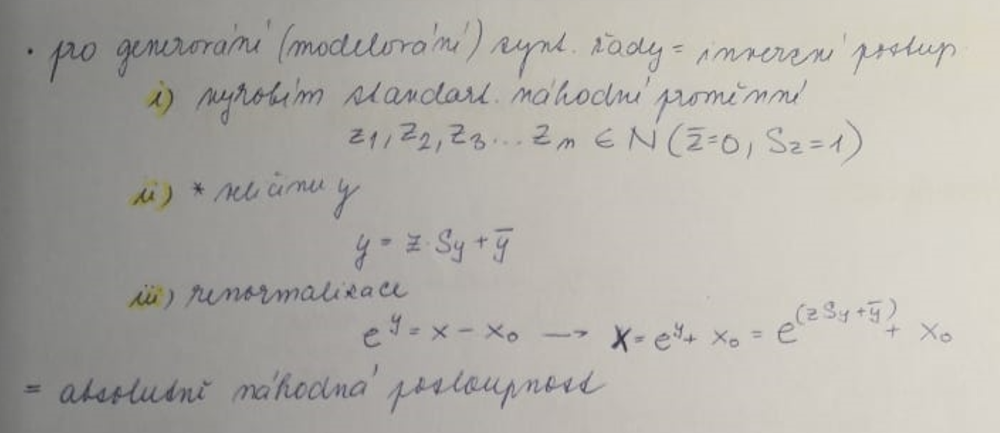 • pro generování (modelování) synt. řady = inverzní postup
i) vyrobím standard. náhodné proměnné
z1, z2, z3 ... zn ∈ N (z̄=0, Sz=1)
ii) * veličinu y
y = z · Sy + ȳ
iii) renormalizace
e^y = x - x₀ → x = e^y + x₀ = e^(z Sy + ȳ) + x₀
= absolutně náhodná posloupnost